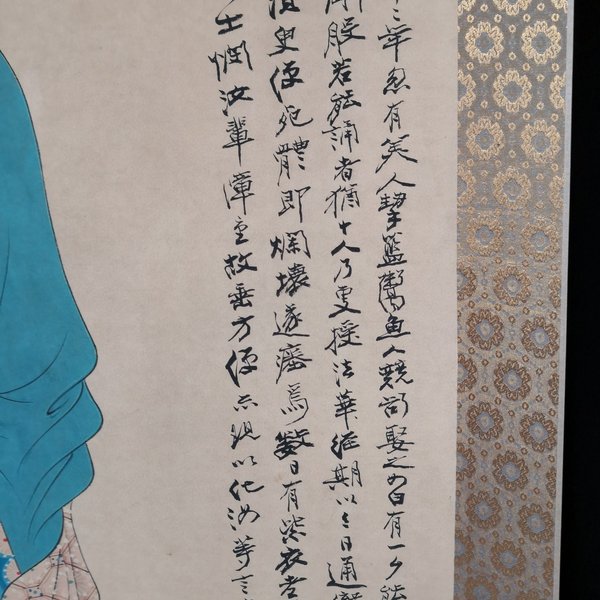 二年忽有美人挈籃鬻魚人競欲娶之女曰有一夕能
般若能誦者猶十人乃更授法華經期以三日通
臾便死體即爛壞遂瘞焉數日有紫衣老
士憫汝輩障重故垂方便示現以化汝等言